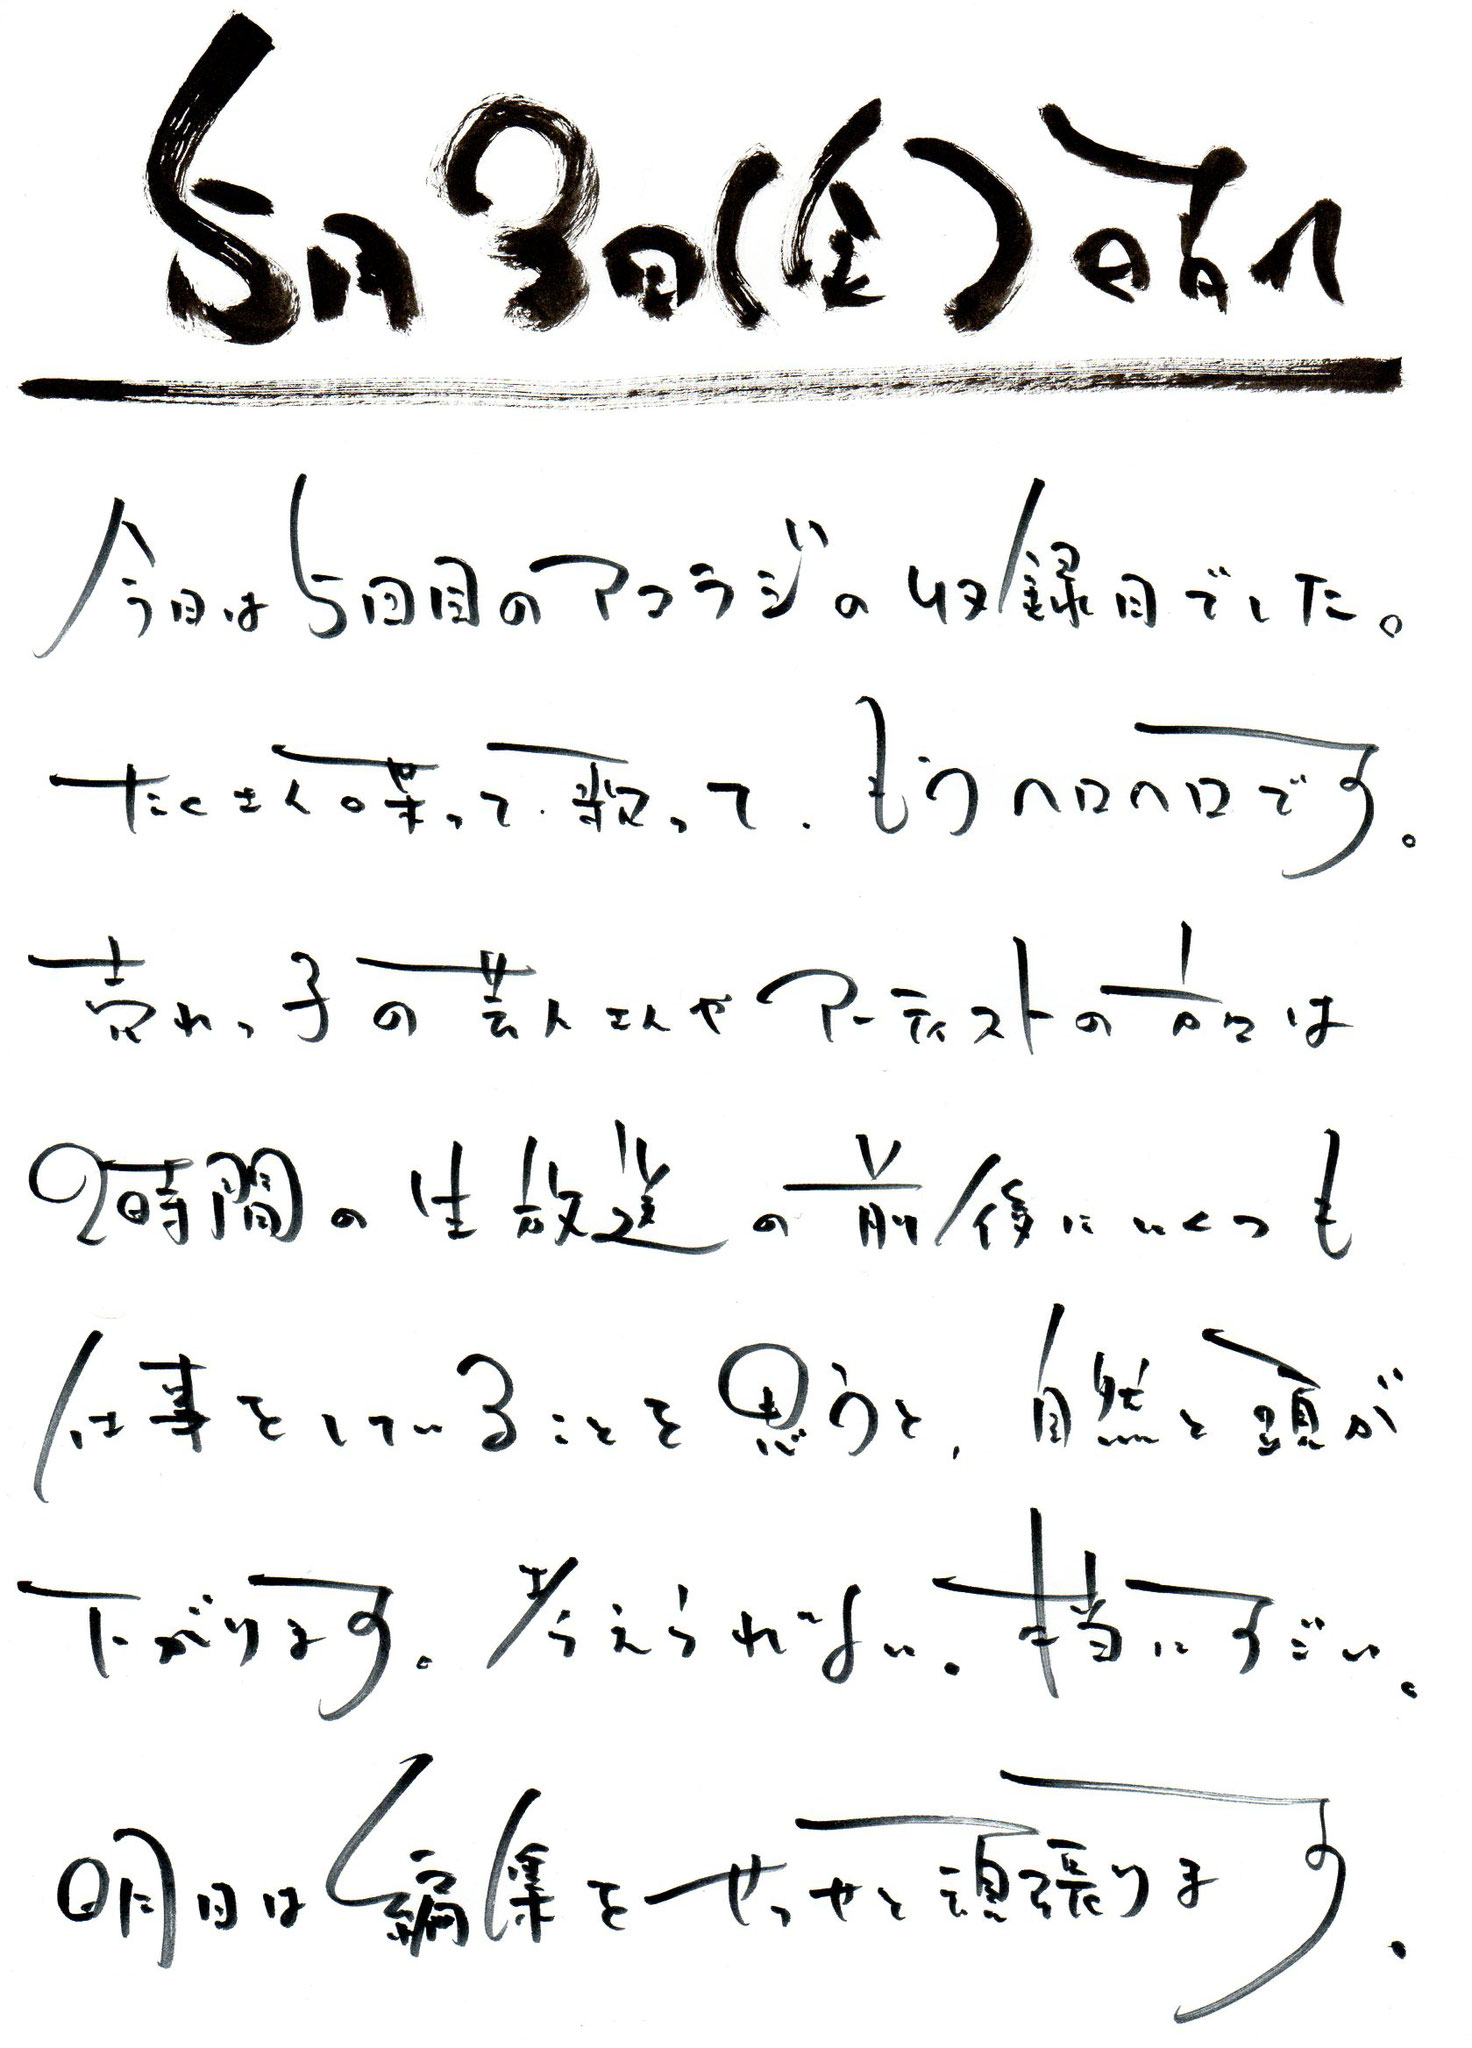 5月3日(金)晴れ
今日は5回目のアコラジの収録日でした。
たくさん喋って、歌って、もうヘロヘロです。
売れっ子の芸人さんやアーティストの方々は
2時間の生放送の前後にいくつも
仕事をしていることを思うと、自然と頭が
下がります。考えられない。本当にすごい。
明日は編集をせっせと頑張ります。